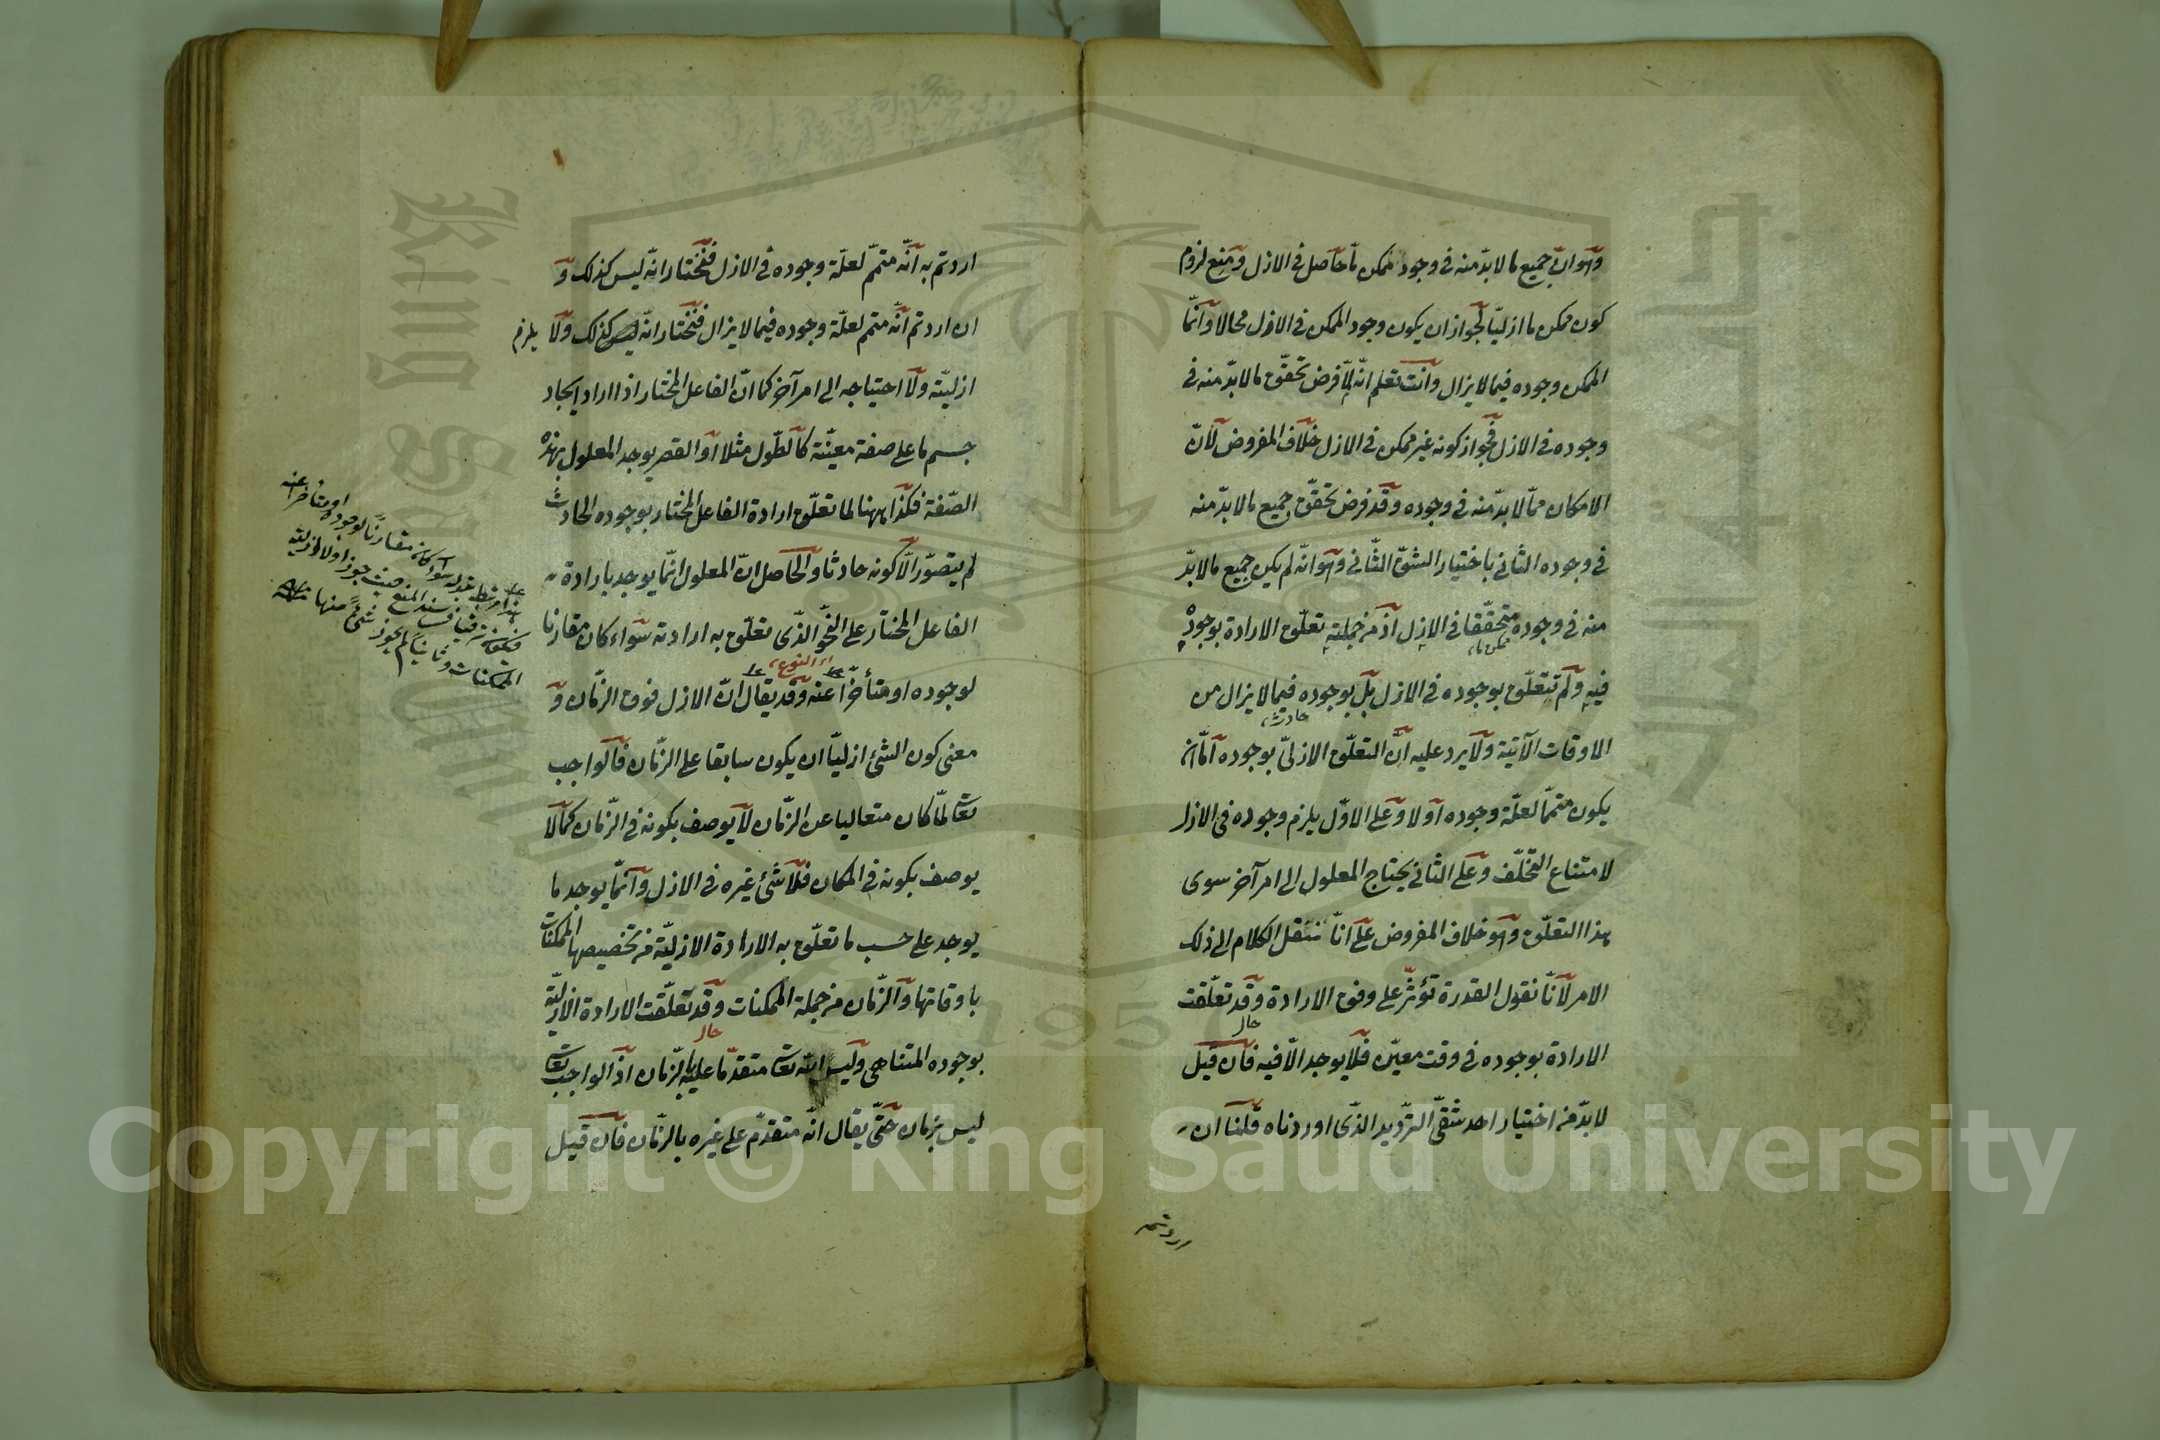 وهو ان جميع ما لا بدّ منه في وجود ممكن ما حاصل في الازل ومنع لزوم
كون ممكن ما ازليّا لجواز ان يكون وجود الممكن في الازل محالا وانّما
الممكن وجوده فيما لا يزال وانت تعلم انّه لمّا فرض تحقّق ما لا بدّ منه في
وجوده في الازل فجواز كونه غير ممكن في الازل خلاف المفروض لانّ
الامكان ممّا لا بدّ منه في وجوده وقد فرض تحقّق جميع ما لا بدّ منه
في وجوده الثاني باختيار الشقّ الثّاني وهو انّه لم يكن جميع ما لا بدّ
منه في وجوده متحقّقا في الازل اذ من جملته تعلّق الارادة بوجوده
ممكن ما
فيه ولم تتعلّق بوجوده في الازل بل بوجوده فيما لا يزال من
حادث
الاوقات الآتية ولا يرد عليه انّ التعلّق الازليّ بوجوده امّا ان
يكون متمّما لعلّة وجوده او لا وعلى الاوّل يلزم وجوده في الازل
لامتناع التخلّف وعلى الثاني يحتاج المعلول الى امر آخر سوى
هذا التعلّق وهو خلاف المفروض على انّا ننقل الكلام الى ذلك
الامر لانّا نقول القدرة تؤثّر على وفق الارادة وقد تعلّقت
حال
الارادة بوجوده في وقت معيّن فلا يوجد الّا فيه فان قيل
لا بدّ من اختيار احد شقّي التّرديد الذّي اوردناه قلنا ان
اردتم
اردتم به انّه متمّم لعلّة وجوده في الازل فنختار انّه ليس كذلك و
ان اردتم انّه متمم لعلّة وجوده فيما لا يزال فنختار انّه كذلك ولا يلزم
ازليّته ولا احتياجه الى امر آخر كما انّ الفاعل المختار اذا اراد ايجاد
جسم ما على صفة معيّنة كالطّول مثلا او القصر يوجد المعلول بهذه
الصّفة فكذا ههنا لما تعلّق ارادة الفاعل المختار بوجوده الحادث
لم يتصوّر الّا كونه حادثا والحاصل انّ المعلول انّما يوجد بارادة
الفاعل المختار على النّحو الذّي تعلّق به ارادته سواء كان مقارنا
اى النوع
لوجوده او متأخّرا عنه وقد يقال انّ الازل فوق الزّمان و
معنى كون الشئ ازليّا ان يكون سابقا على الزّمان فالواجب
تعالى لمّا كان متعاليا عن الزّمان لا يوصف بكونه في الزّمان كما لا
يوصف بكونه في المكان فلا شئ غيره في الازل وانّما يوجد ما
يوجد على حسب ما تعلّق به الارادة الازليّة من تخصيصها الممكنات
باوقاتها والزّمان من جملة الممكنات وقد تعلّقت الارادة الازليّة
حال
بوجوده المتناهي وليس الله تعالى متقدّما عليه بالزّمان اذ الواجب تعالى
ليس بزمان حتّى يقال انّه متقدّم على غيره بالزّمان فان قيل
سواء كان مقارنا لوجوده او متأخرا عنه
الممكنات وثانيا لم يجوز شئ منها
King Saud University
1957
Copyright © King Saud University